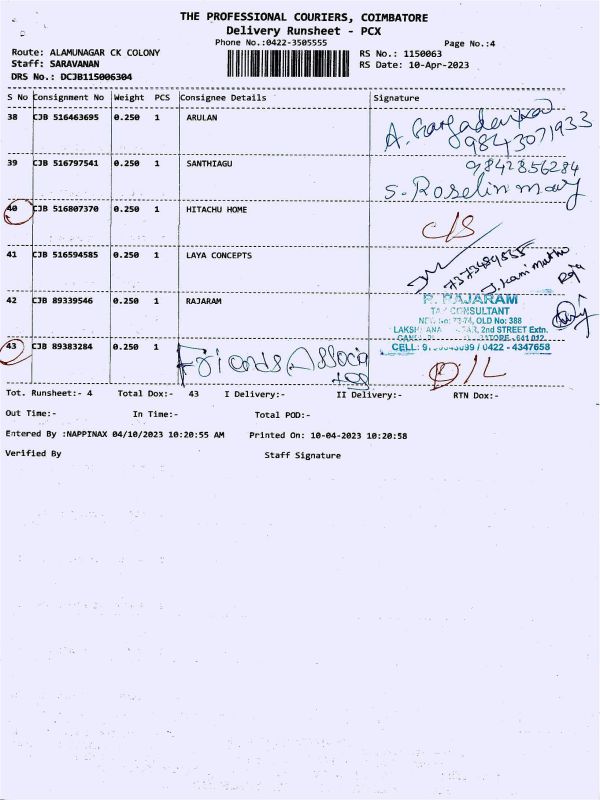 THE PROFESSIONAL COURIERS, COIMBATORE
Delivery Runsheet - PCX
Phone No.:0422-3505555
Page No.:4
Route: ALAMUNAGAR CK COLONY
RS No.: 1150063
Staff: SARAVANAN
RS Date: 10-Apr-2023
DRS No.: DCJB115006304
S No Consignment No Weight PCS Consignee Details Signature
38 CJB 516463695 0.250 1 ARULAN
9843071933
39 CJB 516797541 0.250 1 SANTHIAGU
9842856284
S. Roselin mary
40 CJB 516807370 0.250 1 HITACHU HOME
C/S
41 CJB 516594585 0.250 1 LAYA CONCEPTS
7373489555
42 CJB 89339546 0.250 1 RAJARAM
R. RAJARAM
TAX CONSULTANT
NEW No: 73-74, OLD No: 388
2nd STREET Extn.
641 012.
43 CJB 89383284 0.250 1 Friends Associates
CELL: / 0422 - 4347658
D/L
Tot. Runsheet:- 4 Total Dox:- 43 I Delivery:- II Delivery:- RTN Dox:-
Out Time:- In Time:- Total POD:-
Entered By :NAPPINAX 04/10/2023 10:20:55 AM Printed On: 10-04-2023 10:20:58
Verified By Staff Signature